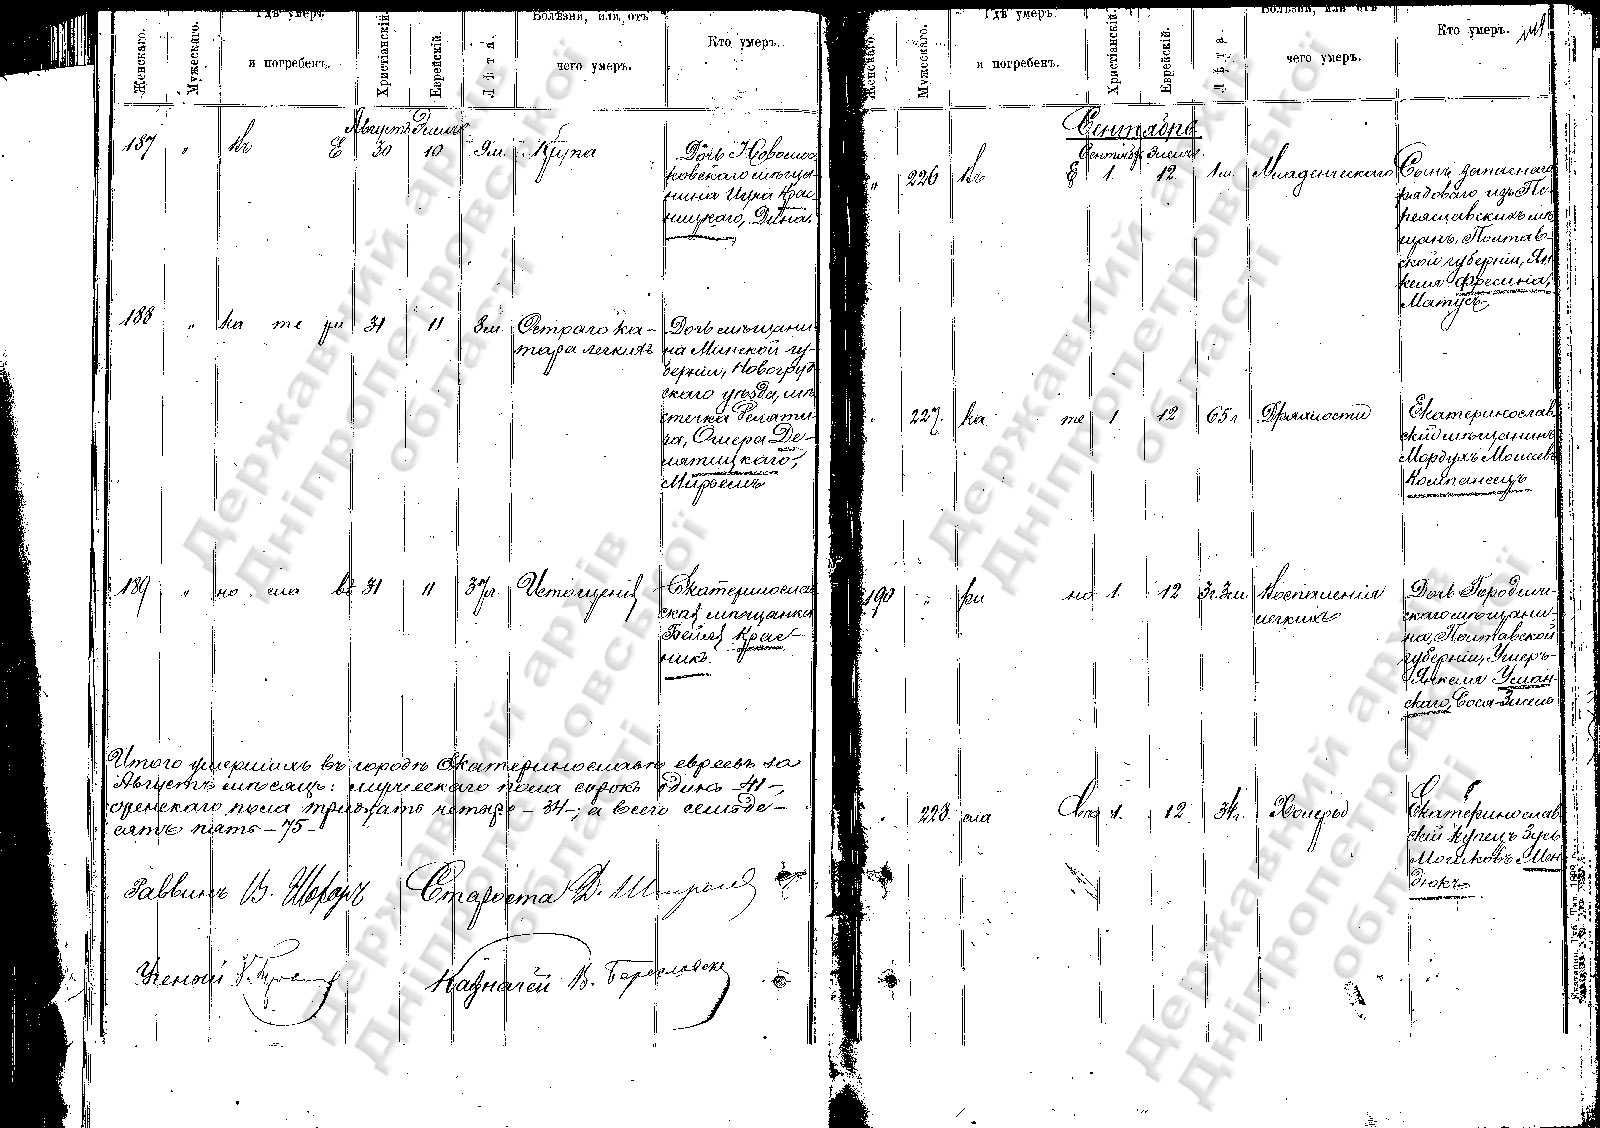 Женскаго.
Мужескаго.
Гдѣ умеръ
и погребенъ.
Христіанскій.
Еврейскій.
Лѣта.
Болѣзни, или отъ
чего умеръ.
Кто умеръ.
Августъ Элиль
187 " Въ Е 30 10 9 м. Крупа
Дочь Новомос-
ковскаго мѣща-
нина Икра Крас-
ницкаго, Дина.
188 " ка те ри 31 11 8 м. Остраго ка-
тара легкихъ
Дочь мѣщани-
на Минской гу-
берніи, Новогруд-
скаго уѣзда, мѣ-
стечка Деляти-
ча, Ошера Де-
лятицкаго,
Мирьемъ
189 " но сла вѣ 31 11 37 л. Истощенія
Екатеринослав-
ская мѣщанка
Бейля Крас-
никъ.
Итого умершихъ въ городѣ Екатеринославѣ евреевъ за
Августъ мѣсяцъ: мужескаго пола сорокъ одинъ -41-,
женскаго пола тридцать четыре -34-; а всего семьде-
сятъ пять -75-
Раввинъ В. Шефъ
Староста Д.
Ученый
Казначей В.
Женскаго.
Мужескаго.
Гдѣ умеръ
и погребенъ.
Христіанскій.
Еврейскій.
Лѣта.
Болѣзни, или отъ
чего умеръ.
Кто умеръ.
Сентябрь
Сентябрь Элиль
" 226 Въ Е 1. 12 1 м. Младенческаго
Сынъ запаснаго
рядоваго изъ Пе-
реяславскихъ мѣ-
щанъ, Полтав-
ской губерніи, Ян-
келя Фресина,
Матусъ
" 227. ка те 1 12 65 л Дряхлости
Екатеринослав-
скій мѣщанинъ
Мордухъ Моисеевъ
Компанеецъ
190 " ри но 1. 12 3 г. 3 м. Воспаленія
легкихъ
Дочь Городищ-
скаго мѣщани-
на, Полтавской
губерніи, Умеръ-
Янкеля Усман-
скаго, Сося-Зисель
" 228. сла вѣ 1. 12 34 г. Холеры
Екатеринослав-
скій купецъ Зусь
Мошковъ Мен-
дюкъ
Державний архів
Дніпропетровської
області
Державний архів
Дніпропетровської
області
Державний архів
Дніпропетровської
області
Державний архів
Дніпропетровської
області